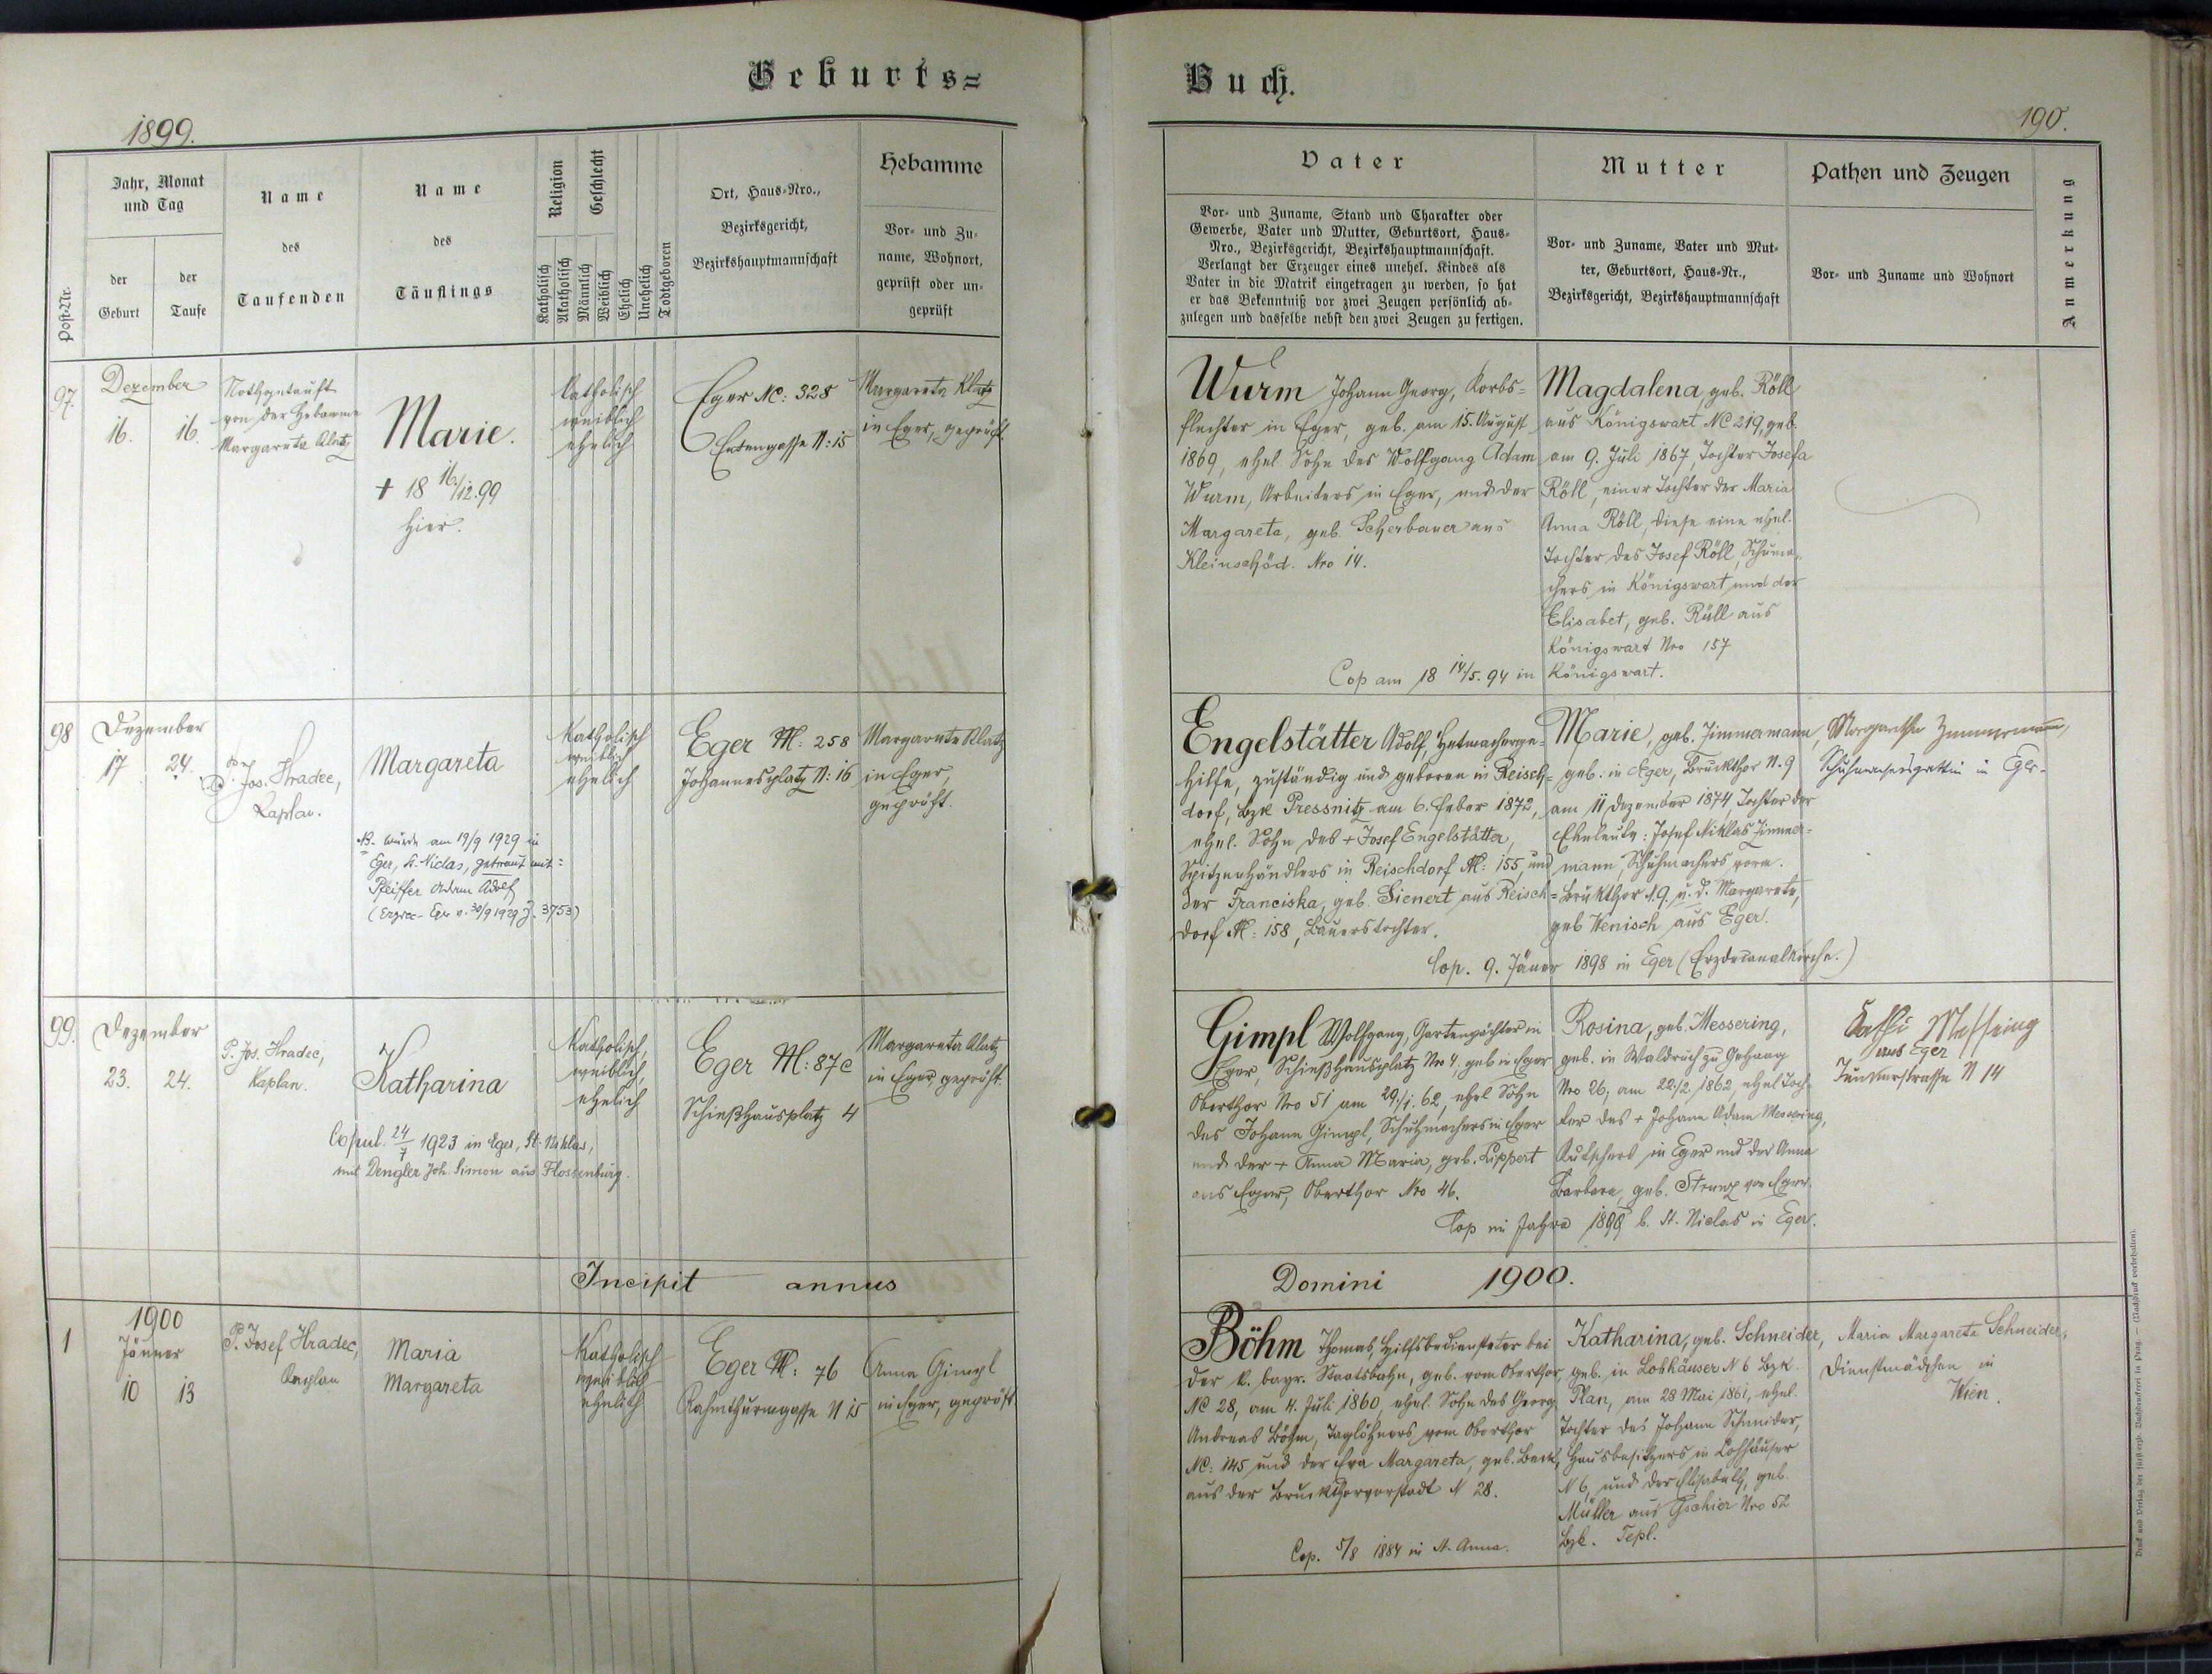 Geburts=
Buch.
1899.
190.
Post-Nr.
Jahr, Monat
und Tag
der
Geburt
der
Taufe
Name
des
Taufenden
Name
des
Täuflings
Religion
Katholisch
Akatholisch
Geschlecht
Männlich
Weiblich
Ehelich
Unehelich
Todtgeboren
Ort, Haus-Nro.,
Bezirksgericht,
Bezirkshauptmannschaft
Hebamme
Vor- und Zu-
name, Wohnort,
geprüft oder un-
geprüft
Vater
Vor- und Zuname, Stand und Charakter oder
Gewerbe, Vater und Mutter, Geburtsort, Haus-
Nro., Bezirksgericht, Bezirkshauptmannschaft.
Verlangt der Erzeuger eines unehel. Kindes als
Vater in die Matrik eingetragen zu werden, so hat
er das Bekenntniß vor zwei Zeugen persönlich ab-
zulegen und dasselbe nebst den zwei Zeugen zu fertigen.
Mutter
Vor- und Zuname, Vater und Mut-
ter, Geburtsort, Haus-Nr.,
Bezirksgericht, Bezirkshauptmannschaft
Pathen und Zeugen
Vor- und Zuname und Wohnort
Anmerkung
97.
Dezember
16. 16.
Nothgetauft
von der Hebamme
Margareta Klatz
Marie.
+ 18 16/12. 99
hier.
Katholisch
weiblich
ehelich
Eger NC: 328
Entengasse N: 15
Margareta Klatz
in Eger, geprüft
Wurm Johann Georg, Korb-
flechter in Eger, geb. am 15. August
1869, ehel. Sohn des Wolfgang Adam
Wurm, Arbeiters in Eger, und der
Margareta, geb. Scherbauer aus
Kleinschöd. Nro 14.
Magdalena, geb. Röll
aus Königswart NC 219, geb.
am 9. Juli 1867, Tochter Josefa
Röll, einer Tochter der Maria
Anna Röll, diese eine ehel.
Tochter des Josef Röll, Schuma-
chers in Königswart und der
Elisabet, geb. Rüll aus
Königswart Nro 157
Cop am 18 14/5. 94 in Königswart.
98
Dezember
17. 24.
P. Jos. Hradec,
Kaplan.
Margareta
NB. wurde am 19/9 1929 in
Eger, St. Niclas, getraut mit:
Pfeiffer Adam Adolf
(Erzdec. Eger v. 30/9 1929 Z. 3753)
Katholisch
weiblich
ehelich
Eger NC: 258
Johannesplatz N: 16
Margareta Klatz
in Eger,
geprüft.
Engelstätter Adolf, Hutmacherge-
hilfe, zuständig und geboren in Reisch-
dorf, Bzk Pressnitz am 6. Feber 1872,
ehel. Sohn des + Josef Engelstätter,
Spitzenhändlers in Reischdorf NC: 155, und
der Franciska, geb. Sienert aus Reisch-
dorf NC: 158, Bauerstochter.
Marie, geb. Zimmermann,
geb: in Eger, Bruckthor N. 9
am 11 Dezember 1874 Tochter der
Eheleute: Josef Niklas Zimmer-
mann, Schuhmachers vorm.
Brukthor N. 9. u. d. Margarete,
geb Wenisch aus Eger.
Cop. 9. Jäner 1898 in Eger (Erzdecanalkirche.)
Margaretha Zimmermann,
Schuhmachersgattin in Eger.
99.
Dezember
23. 24.
P. Jos. Hradec,
Kaplan.
Katharina
Copul. 24/7 1923 in Eger, St. Niklas,
mit Dengler Joh. Simon aus Flossenbürg.
Katholisch,
weiblich,
ehelich
Eger NC: 87c
Schießhausplatz 4
Margareta Klatz
in Eger, geprüft.
Gimpl Wolfgang, Gartenpächter in
Eger, Schießhausplatz Nro 4, geb in Eger
Oberthor Nro 51 am 29./1. 62, ehel Sohn
des Johann Gimpl, Schuhmachers in Eger
und der + Anna Maria, geb. Lippert
aus Eger, Oberthor Nro 46.
Rosina, geb. Messering,
geb. in Waldruh zu Gehaag
Nro 26, am 22./2. 1862, ehel Toch-
ter des + Johann Adam Messering,
Kutschers in Eger und der Anna
Barbara, geb. von Eger.
Cop im Jahre b. St. Niclas in Eger.
Kathi
aus Eger
Junkerstrasse N 14
Incipit annus
Domini 1900.
1
1900
Jänner
10 13
P. Josef Hradec,
Kaplan
Maria
Margareta
Katholisch
weiblich
ehelich
Eger NC: 76
Rahmthurmgasse N 15
Anna Gimpl
in Eger, geprüft
Böhm Thomas, Hilfsbediensteter bei
der k. bayr. Staatsbahn, geb. vom Oberthor
NC 28, am 4. Juli 1860, ehel. Sohn des Georg
Andreas Böhm, Taglöhners vom Oberthor
NC: 145 und der Eva Margareta, geb. Beck,
aus der Bruckthorvorstadt N 28.
Cop. 5/8 1884 in St. Anna.
Katharina, geb. Schneider,
geb. in Lohhäuser N 6 Bzk.
Plan, am 28 Mai 1861, ehel.
Tochter des Johann Schneider,
Hausbesitzers in Lohhäuser
N 6, und der Elisabeth, geb.
Müller aus Tschier Nro 52
Bzk. Tepl.
Maria Margareta Schneider,
Dienstmädchen in
Wien.
Druck und Verlag der fürsterzb. Buchdruckerei in Prag. — (Nachdruck vorbehalten).